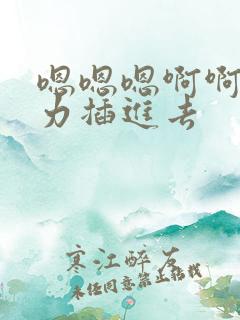 嗯嗯嗯啊啊
力插進去
寒江醉友
未经同意禁止搬载